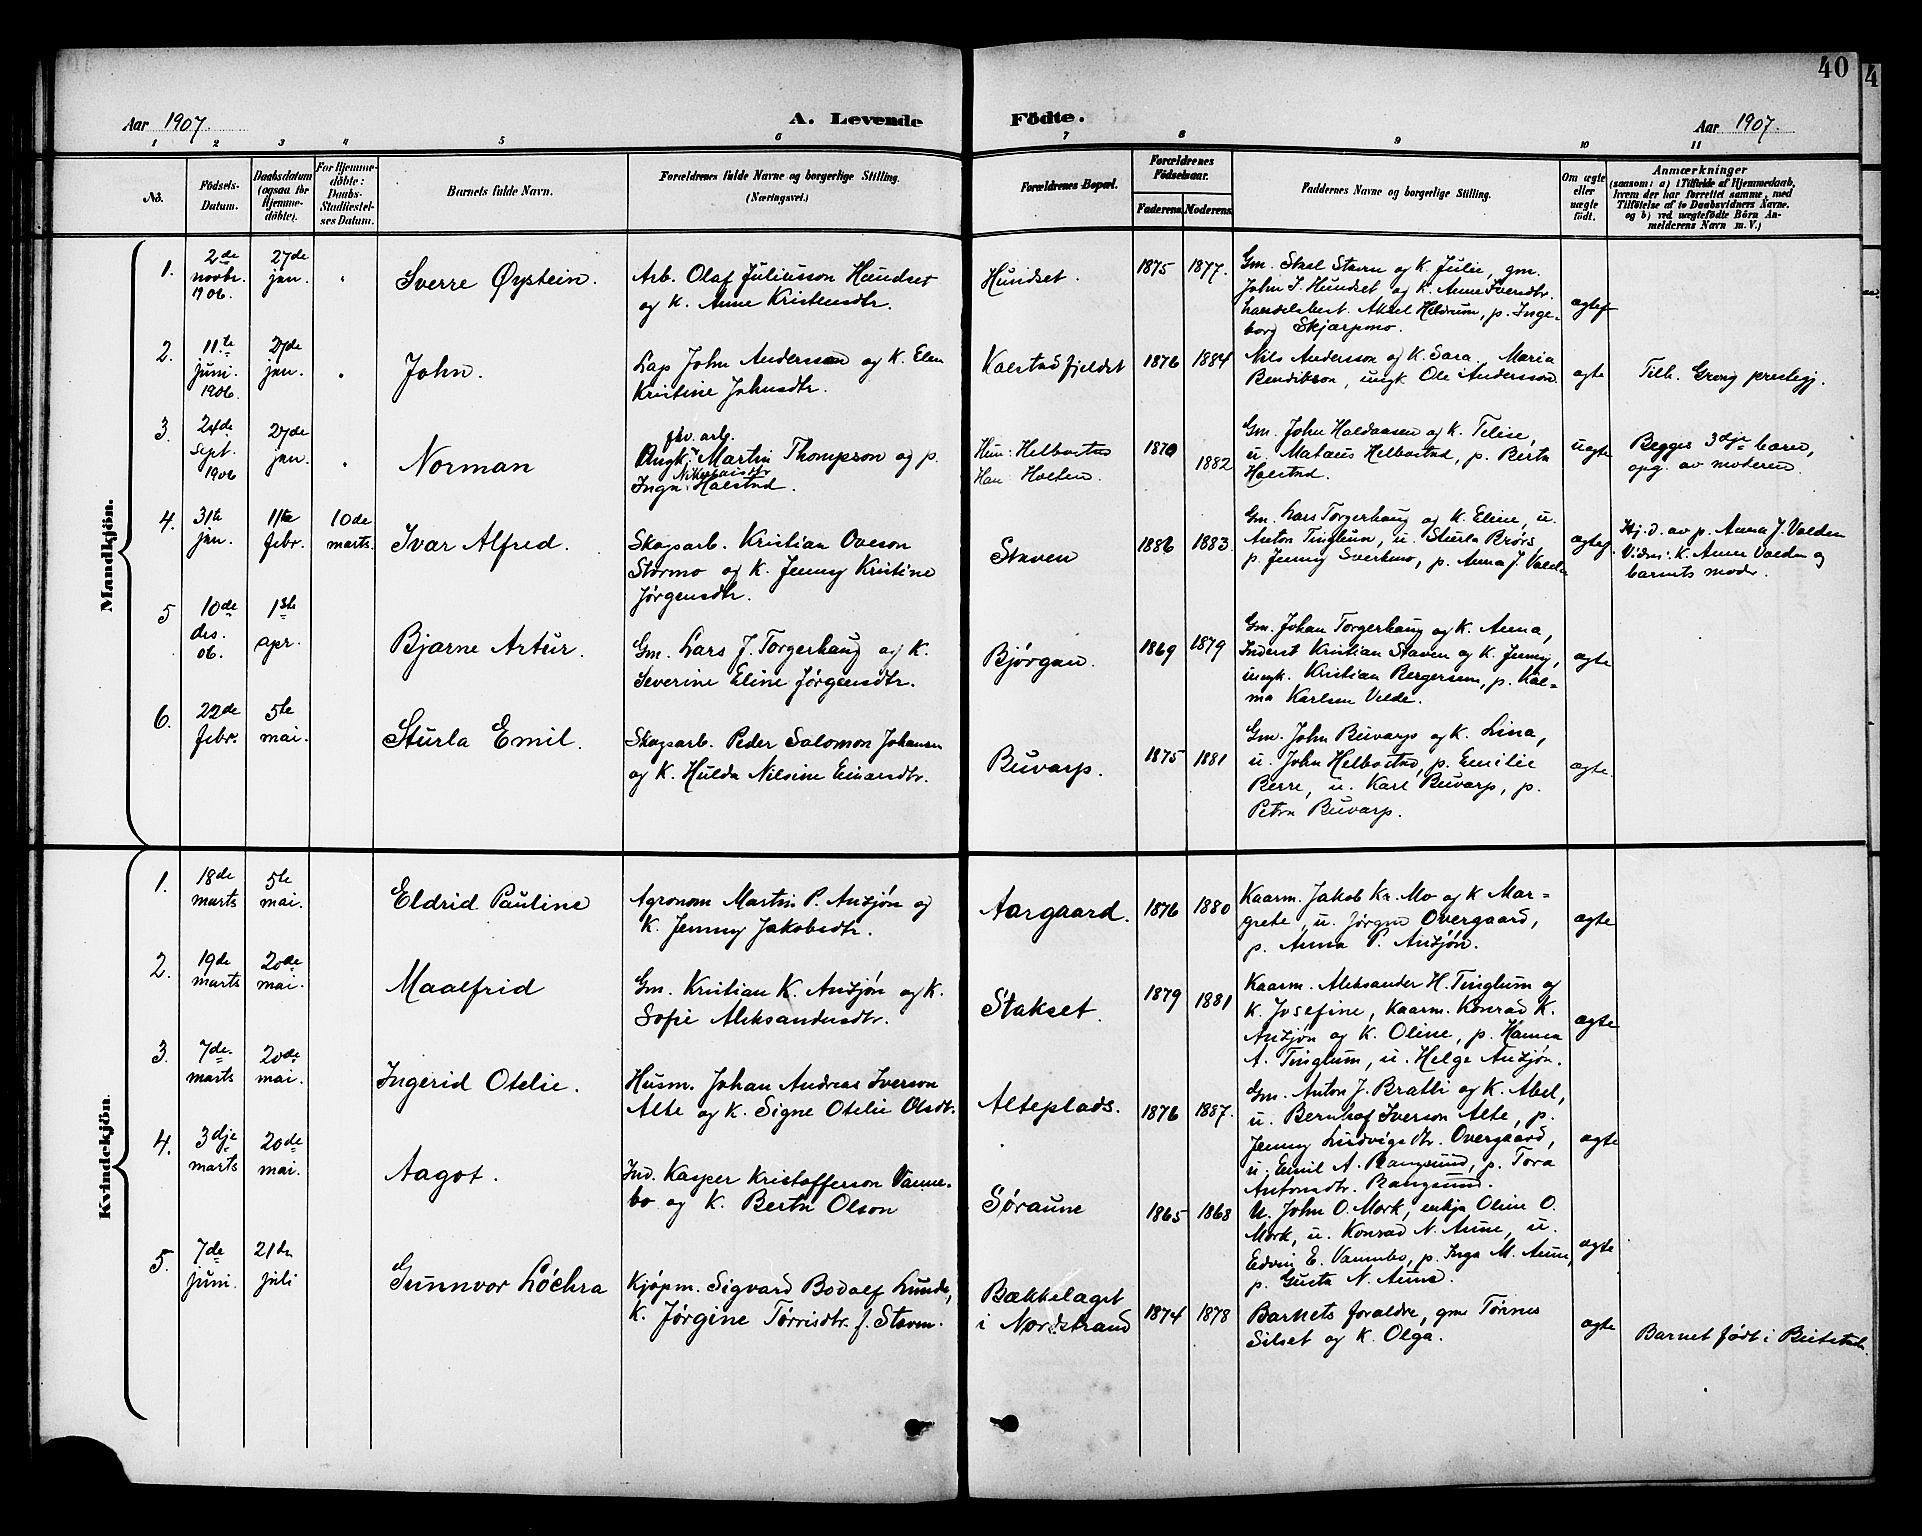 40
4
Aar 1907.
A. Levende Födte.
Aar 1907.
1 2 3 4 5 6 7 8 9 10 11
No.
Födsels-
Datum.
Daabsdatum
(ogsaa for
Hjemme-
döbte).
For Hjemme-
döbte:
Daabs-
Stadfæstel-
ses Datum.
Barnets fulde Navn.
Forældrenes fulde Navne og borgerlige Stilling.
(Næringsvei.)
Forældrenes Bopæl.
Forældrenes
Födselsaar.
Faderens. Moderens.
Faddernes Navne og borgerlige Stilling.
Om ægte
eller
uægte
født.
Anmærkninger
(saasom: a) i Tilfælde af Hjemmedaab,
hvem der har forrettet samme, med
Tilföielse af to Daabsvidners Navne.
og b) ved uægtefödte Börn An-
melderens Navn m. V.)
Mandkjön.
1.
2de
novbr.
1906.
27de
jan.
"
Sverre Øystein.
Arb. Olaf Juliusson Hundset
og k. Anne Kristensdtr.
Hundset.
1875
1877.
Gm. Skel Stavrn og k. Julie, gm.
John S. Hundset og k. Anne Svendtr.
handelsbest. Aksel Heldrum, p. Inge-
borg Skjærpmo.
ægtef
2.
11te
juni.
1906.
27de
jan.
"
John.
Lap John Anderssen og k. Elen
Kristine Johnsdtr.
Kalstadfjeldet
1876
1884
Nils Andersson og k. Sara. Maria
Bendikson, ungk. Ole Andersson.
ægte
Tilh. Grong prestegj.
3.
24de
sept.
1906
27de
jan.
"
Norman
fhv. arb.
Ungk. Martin Thompson og p.
Nikolaisdtr
Inga Halstad.
Hun: Helbostad
Han: Holten.
1870
1882
Gm. John Haldaasen og k. Telise,
u. Mataus Helbostad, p. Berta
Halstad.
uægte
Begges 3dje barn,
opg. av moderen.
4.
31te
jan.
11te
febr.
10de
marts.
Ivar Alfred.
Skogsarb. Kristian Oveson
Stormo og k. Jenny Kristine
Jørgensdtr.
Staven
1886
1883.
Gm. Lars Torgerhaug og k. Eline, u.
Anton Tinglum, u. Sturla Brørs
p. Jenny Sverkmo, p. Anna J. Valden
ægtef.
Hj.d. av p. Anna J. Valden
Vidni: k. Anne Valden og
barnets moder.
5
10de
des.
06.
1ste
apr.
Bjarne Artur.
Gm. Lars J. Torgerhaug og k.
Severine Eline Jørgensdtr.
Bjørgan.
1869
1879
Gm. Johan Torgerhaug og k. Anna,
Inderst Kristian Staven og k. Jenny,
ungk. Kristian Bergersen, p. Kal-
ma Karlsen Velde.
ægte
6.
22de
febr.
5te
mai.
Sturla Emil.
Skogsarb. Peder Salomon Johansen
og k. Hulda Nilsine Einarsdtr.
Buvarp.
1875
1881
Gm. John Buvarp og k. Lina,
u. John Helbostad, p. Emilie
Berre, u. Karl Buvarp, p.
Petra Buvarp.
ægte.
Kvindekjön.
1.
18de
marts
5te
mai.
Eldrid Pauline
Agronom Martin P. Anzjøn og
k. Jenny Jakobsdtr.
Aargaard.
1876
1880
Kaarm. Jakob Kr. Mo og k Mar-
grete, u. Jørgen Overgaard,
p. Anna P. Anzjøn.
ægte
2.
19de
marts
20de
mai.
Maalfrid
Gm. Kristian K. Anzjøn og k.
Sofie Aleksandersdtr.
Stakset.
1879
1881
Kaarm. Aleksander H. Tinglum og
k. Josefine, kaarm. Konrad K.
Anzjøn og k. Oline, p. Hanna
A. Tinglum, u. Helge Anzjøn.
ægte
3.
7de
marts
20de
mai.
Ingerid Otelie.
Husm. Johan Andreas Iverson
Alte og k. Signe Otelie Olsdtr.
Alteplads.
1876
1887.
Gm. Anton J. Bratli og k. Abel,
u. Bernhof Iverson Alte, p.
Jenny Ludvigsdtr. Overgaard,
u. Emil A. Rangsund, p. Tora
Antonsdtr. Rangsund.
ægte
4.
3dje
marts
20de
mai.
Aagot.
Ind. Kasper Kristofferson Vanne-
bo og k. Berta Olson
Søraune
1865
1868
U. John O. Mork, enkja Oline O.
Mork, u. Konrad N. Aune, u.
Edvin E. Vannebo, p. Inga M. Aune,
p. Gusta N. Aune.
ægte
5.
7de
juni.
21de
juli
Gunnvor Löchra
Kjøpm. Sigvard Bodolf Lunde,
k. Jørgine Tørrisdtr. f. Staven.
Bækkelaget
i Nordstrand
1874
1878
Barnets foraldre, gm Tørnes
Silset og k. Olga.
ægte
Barnet født i Beitstad.